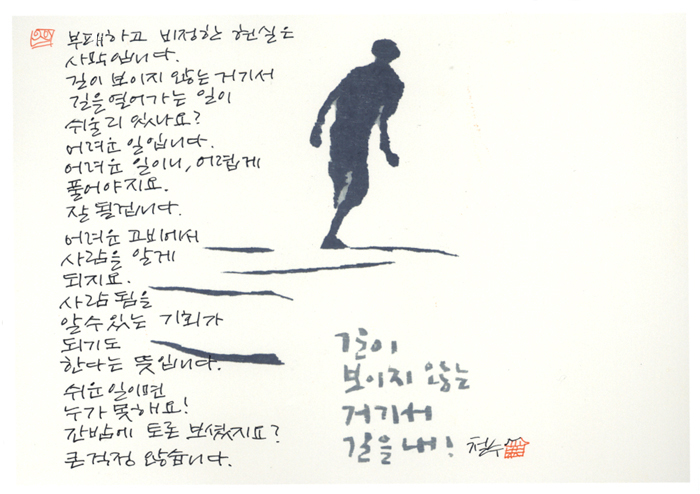 부패하고 비정한 현실은
사막입니다.
길이 보이지 않는 거기서
길을 열어가는 일이
쉬울 리 있나요?
어려운 일입니다.
어려운 일이니, 어렵게
풀어야지요.
잘 될겁니다.
어려운 고비에서
사람을 알게
되지요.
사람 됨을
알 수 있는 기회가
되기도
한다는 뜻입니다.
쉬운 일이면
누가 못해요!
간밤에 토론 보셨지요?
큰 걱정 않습니다.
길이
보이지 않는
거기서
길을 내!
철수